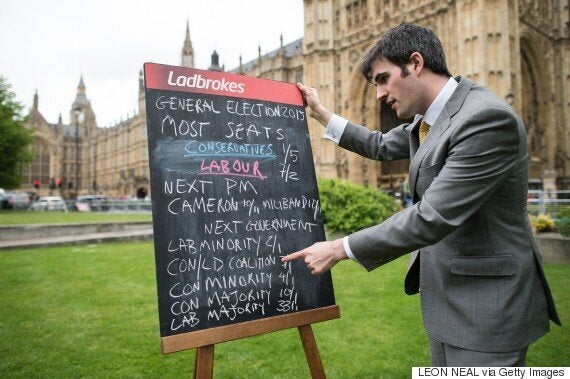 Ladbrokes
GENERAL ELECTION 2015
MOST SEATS
CONSERVATIVES 1/5
LABOUR 7/2
NEXT PM
CAMERON 10/11 MILIBAND
NEXT GOVERNMENT
LAB MINORITY 2/1
CON/LD COALITION
CON MINORITY 4/1
CON MAJORITY 10/1
LAB MAJORITY 33/1
LEON NEAL via Getty Images